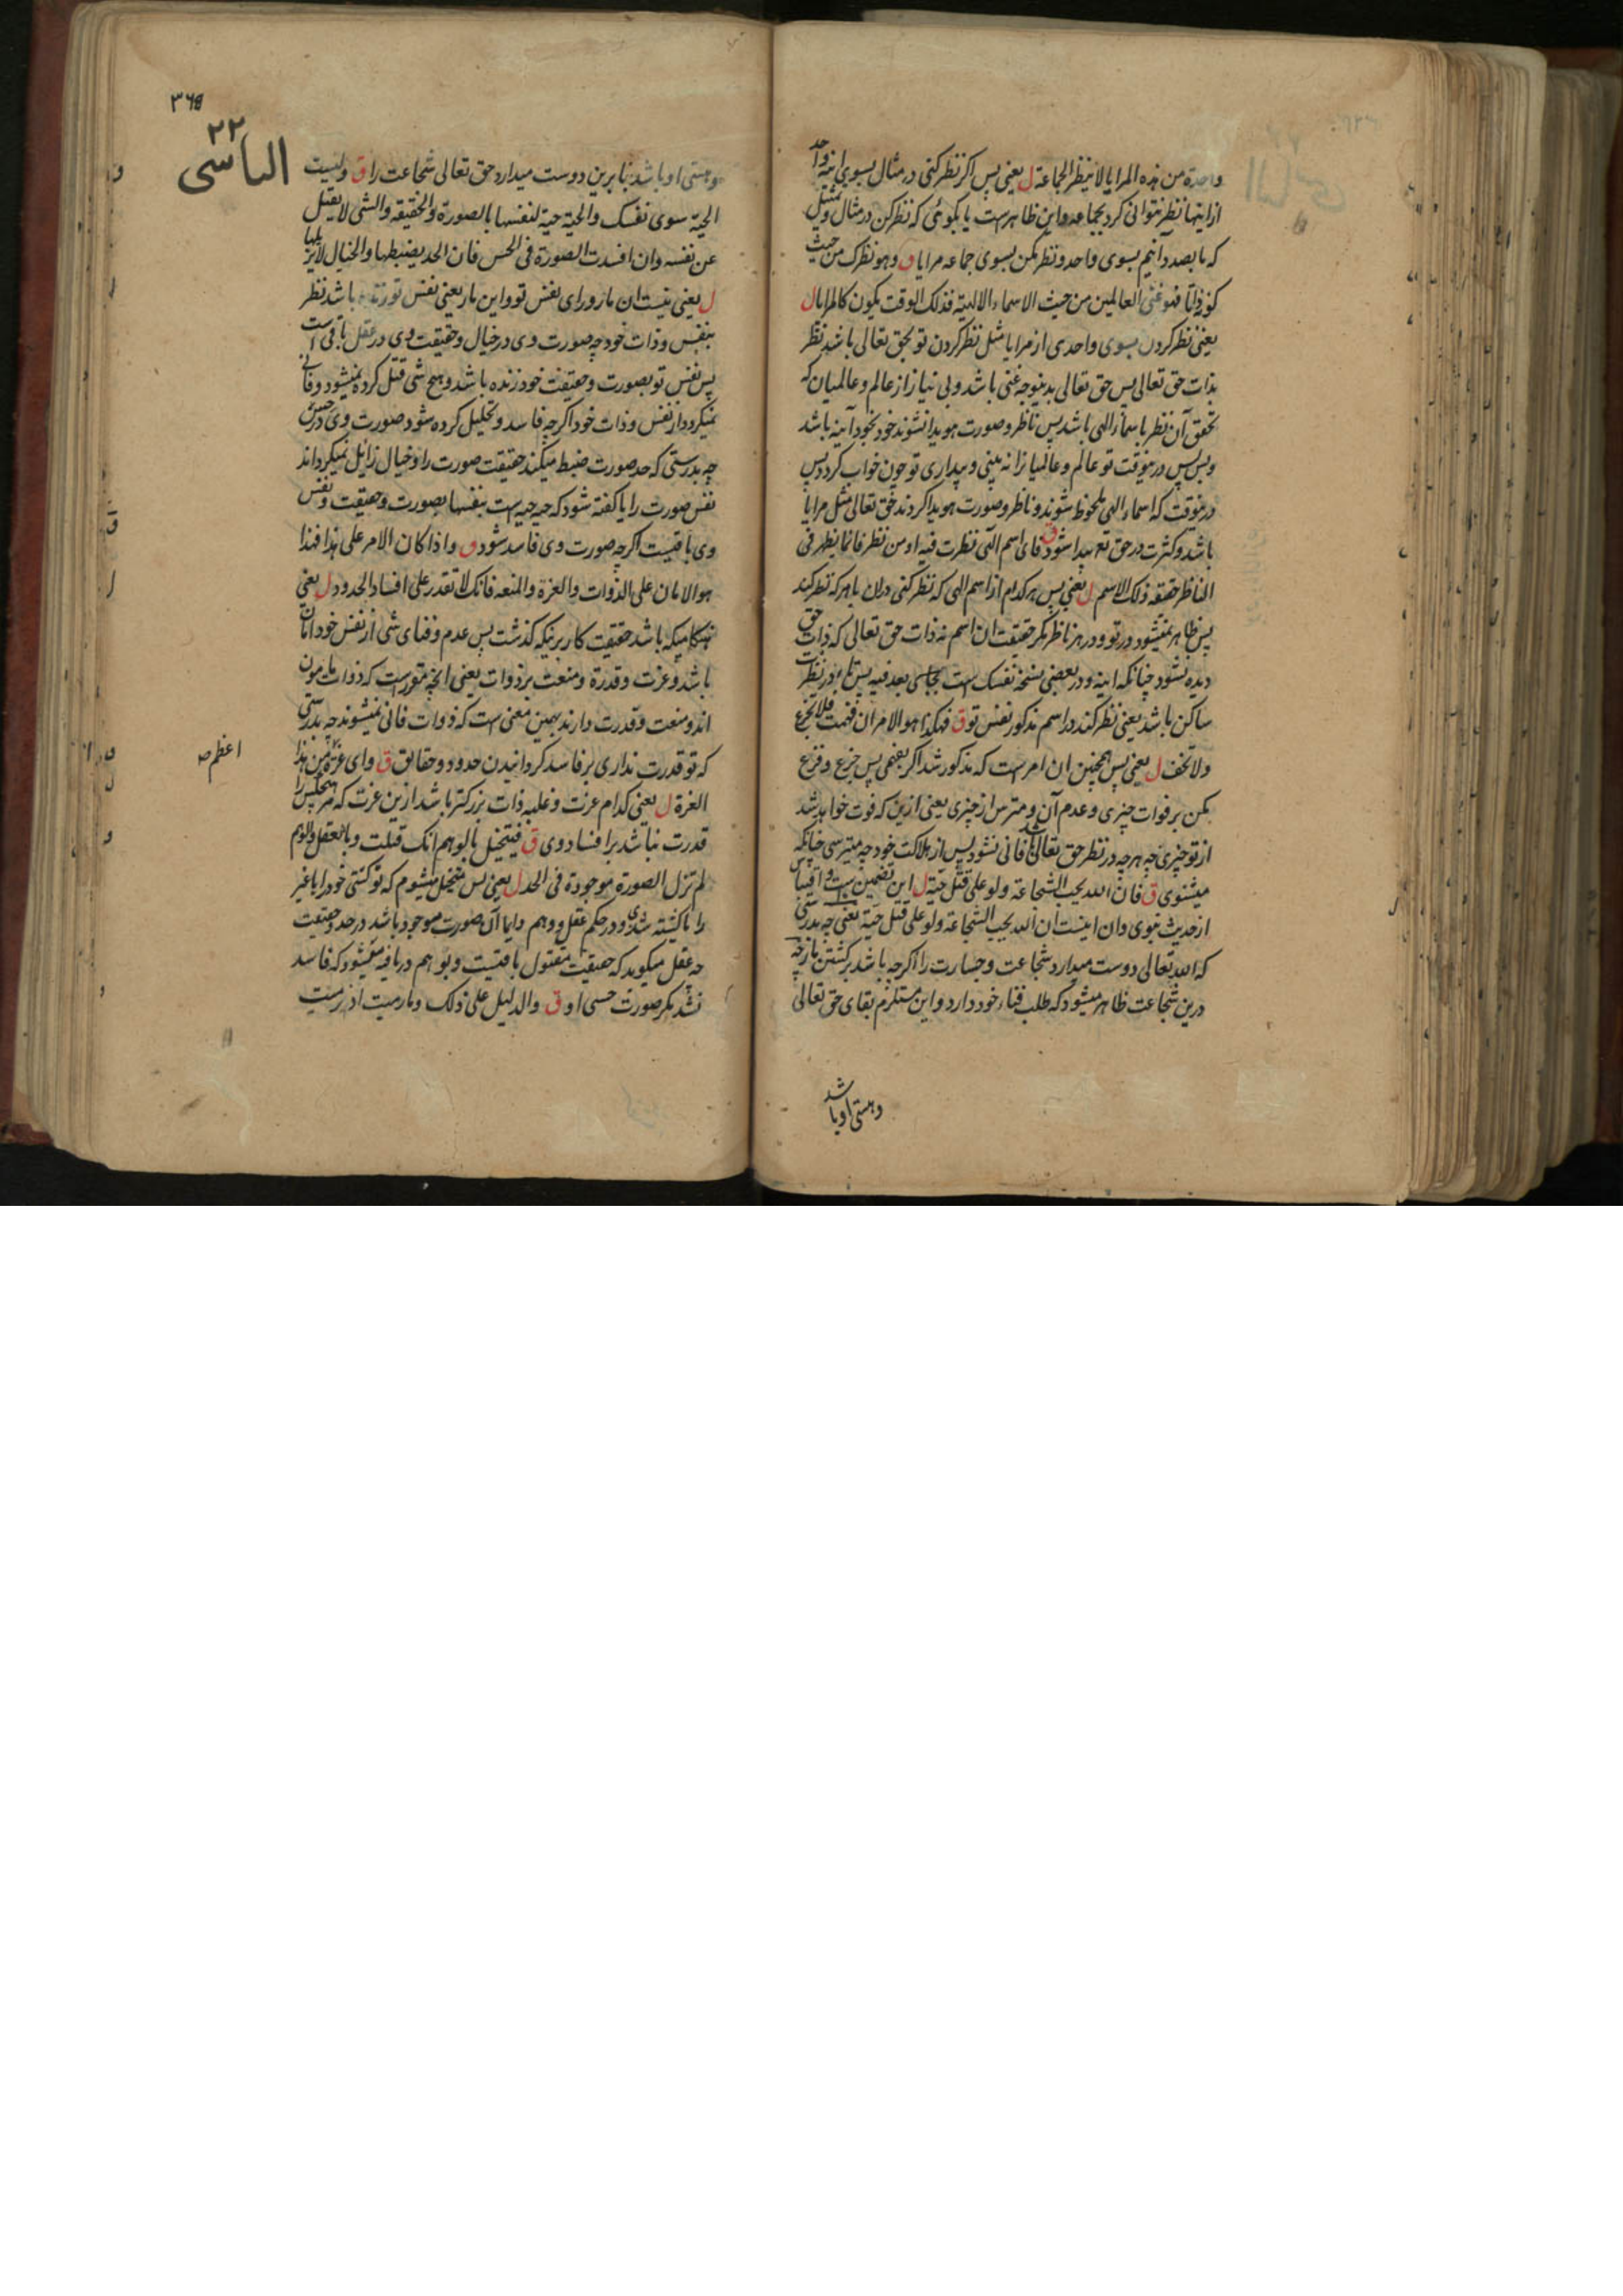 واحدة من هذه المرايا لا ینظر الجماعة ل یعنی پس اکر نظر کنی در مثال بسوی اینه واحد
ازاینها نظر نتوانی کرد بجماعه واین ظاهرست یا بکوئی که نظر کن در مثال وتمثیل
که ما بصدد انیم بسوی واحد ونظر مکن بسوی جماعه مرایا ق وهو نظرک من حیث
کونه ذاتا فهو غنی العالمین من حیث الاسماء الالهیة فذلک الوقت یکون کالمرایا ل
یعنی نظر کردن بسوی واحدی از مرایا مثل نظر کردن تو بحق تعالی باشد نظر
بذات حق تعالی پس حق تعالی بدینوجه غنی باشد وبی نیاز از عالم وعالمیان که
تحقق آن نظر باسماء الهی باشد پس ناظر وصورت هویدا نشوند خود بخود آینه باشد
وبس پس درینوقت تو عالم وعالمیانرا نه بینی وبیداری تو چون خواب کردد پس
درینوقت که اسماء الهی ملحوظ شوند وناظر وصورت هویدا کردند حق تعالی مثل مرایا
باشد وکثرت در حق تع پیدا شود ق فای اسم الهی نظرت فیه او من نظر فانما یظهر فی
الناظر حقیقه ذلک الاسم ل یعنی پس هر کدام از اسم الهی که نظر کنی دران یا هر که نظر کند
پس ظاهر نمیشود در تو ودر هر ناظر مکر حقیقت ان اسم نه ذات حق تعالی که ذات حق
دیده نشود چنانکه اینه ودر بعضی نسخه نفسک است بجای بعد فیه پس تاء در نظرت
ساکن باشد یعنی نظر کند در اسم مذکور نفس تو ق فهکذا هو الامر ان فهمت فلا تجزع
ولا تخف ل یعنی پس همچنین ان امرست که مذکور شد اکر بفهمی پس جزع وفزع
مکن بر فوات چیزی وعدم آن ومترس از چیزی یعنی ازین که فوت خواهد شد
از تو چیزی چه هر چه در نظر حق تعالی باشد فانی نشود پس از هلاکت خود چه میترسی چنانکه
میشنوی ق فان الله یحب الشجاعة ولو علی قتل حیة ل این تضمین است واقتباس
از حدیث نبوی وان اینست ان الله یحب الشجاعة ولو علی قتل حیة یعنی چه بدرستی
که الله تعالی دوست میدارد شجاعت وجسارت را اکرچه باشد بر کشتن مار چه
درین شجاعت ظاهر میشود که طلب فناء خود دارد واین مستلزم بقای حق تعالی
وهستی او باشد
۲۲
الیاسی
وهستی او باشد بنابرین دوست میدارد حق تعالی شجاعت را ق ولیست
الحیة سوی نفسک والحیة حیة لنفسها بالصورة والحقیقه والشی لا یقتل
عن نفسه وان افسدت الصورة فی الحس فان الحد یضبطها والخیال لا یزیلها
ل یعنی نیست ان مار ورای نفس تو واین مار یعنی نفس تو زنده باشد نظر
بنفس وذات خود چه صورت وی در خیال وحقیقت وی در عقل باقی است
پس نفس تو بصورت وحقیقت خود زنده باشد وهیچ شی قتل کرده نمیشود وفانی
نمیکردد از نفس وذات خود اکرچه فاسد وتحلیل کرده شود صورت وی در حس
چه بدرستی که حد صورت ضبط میکند حقیقت صورت را وخیال زایل نمیکرداند
نفس صورت را یا کفته شود که حیه حیه است بنفسها بصورت وحقیقت ونفس
وی باقیست اکرچه صورت وی فاسد شود ق واذا کان الامر علی هذا فهذا
هو الامان علی الذوات والعزة والمنعه فانک لا تقدر علی افساد الحدود ل یعنی
هنکامیکه باشد حقیقت کار برنیکه کذشت پس عدم وفنای شی از نفس خود امان
باشد وعزت وقدرة ومنعت بر ذوات یعنی انچه مقررست که ذوات مامون
اند ومنعت وقدرت دارند بهمین معنی است که ذوات فانی نمیشوند چه بدرستی
که تو قدرت نداری بر فاسد کردانیدن حدود وحقایق ق وای عزة من هذا
اعظم صـ
العزة ل یعنی کدام عزت وغلبه ذات بزرکتر باشد ازین عزت که هیچکس را
قدرت نباشد بر افساد وی ق فیتخیل بالوهم انک قتلت وبالعقل والوهم
لم تزل الصورة موجودة فی الحد ل یعنی پس متخیل میشوم که تو کشتی خود را یا غیر
را یا کشته شدی ودر حکم عقل ووهم دایما آن صورت موجود باشد در حد وحقیقت
چه عقل میکوید که حقیقت مقتول باقیست وبوهم دریافته میشود که فاسد
نشد مکر صورت حسی او ق والدلیل علی ذلک وما رمیت اذ رمیت